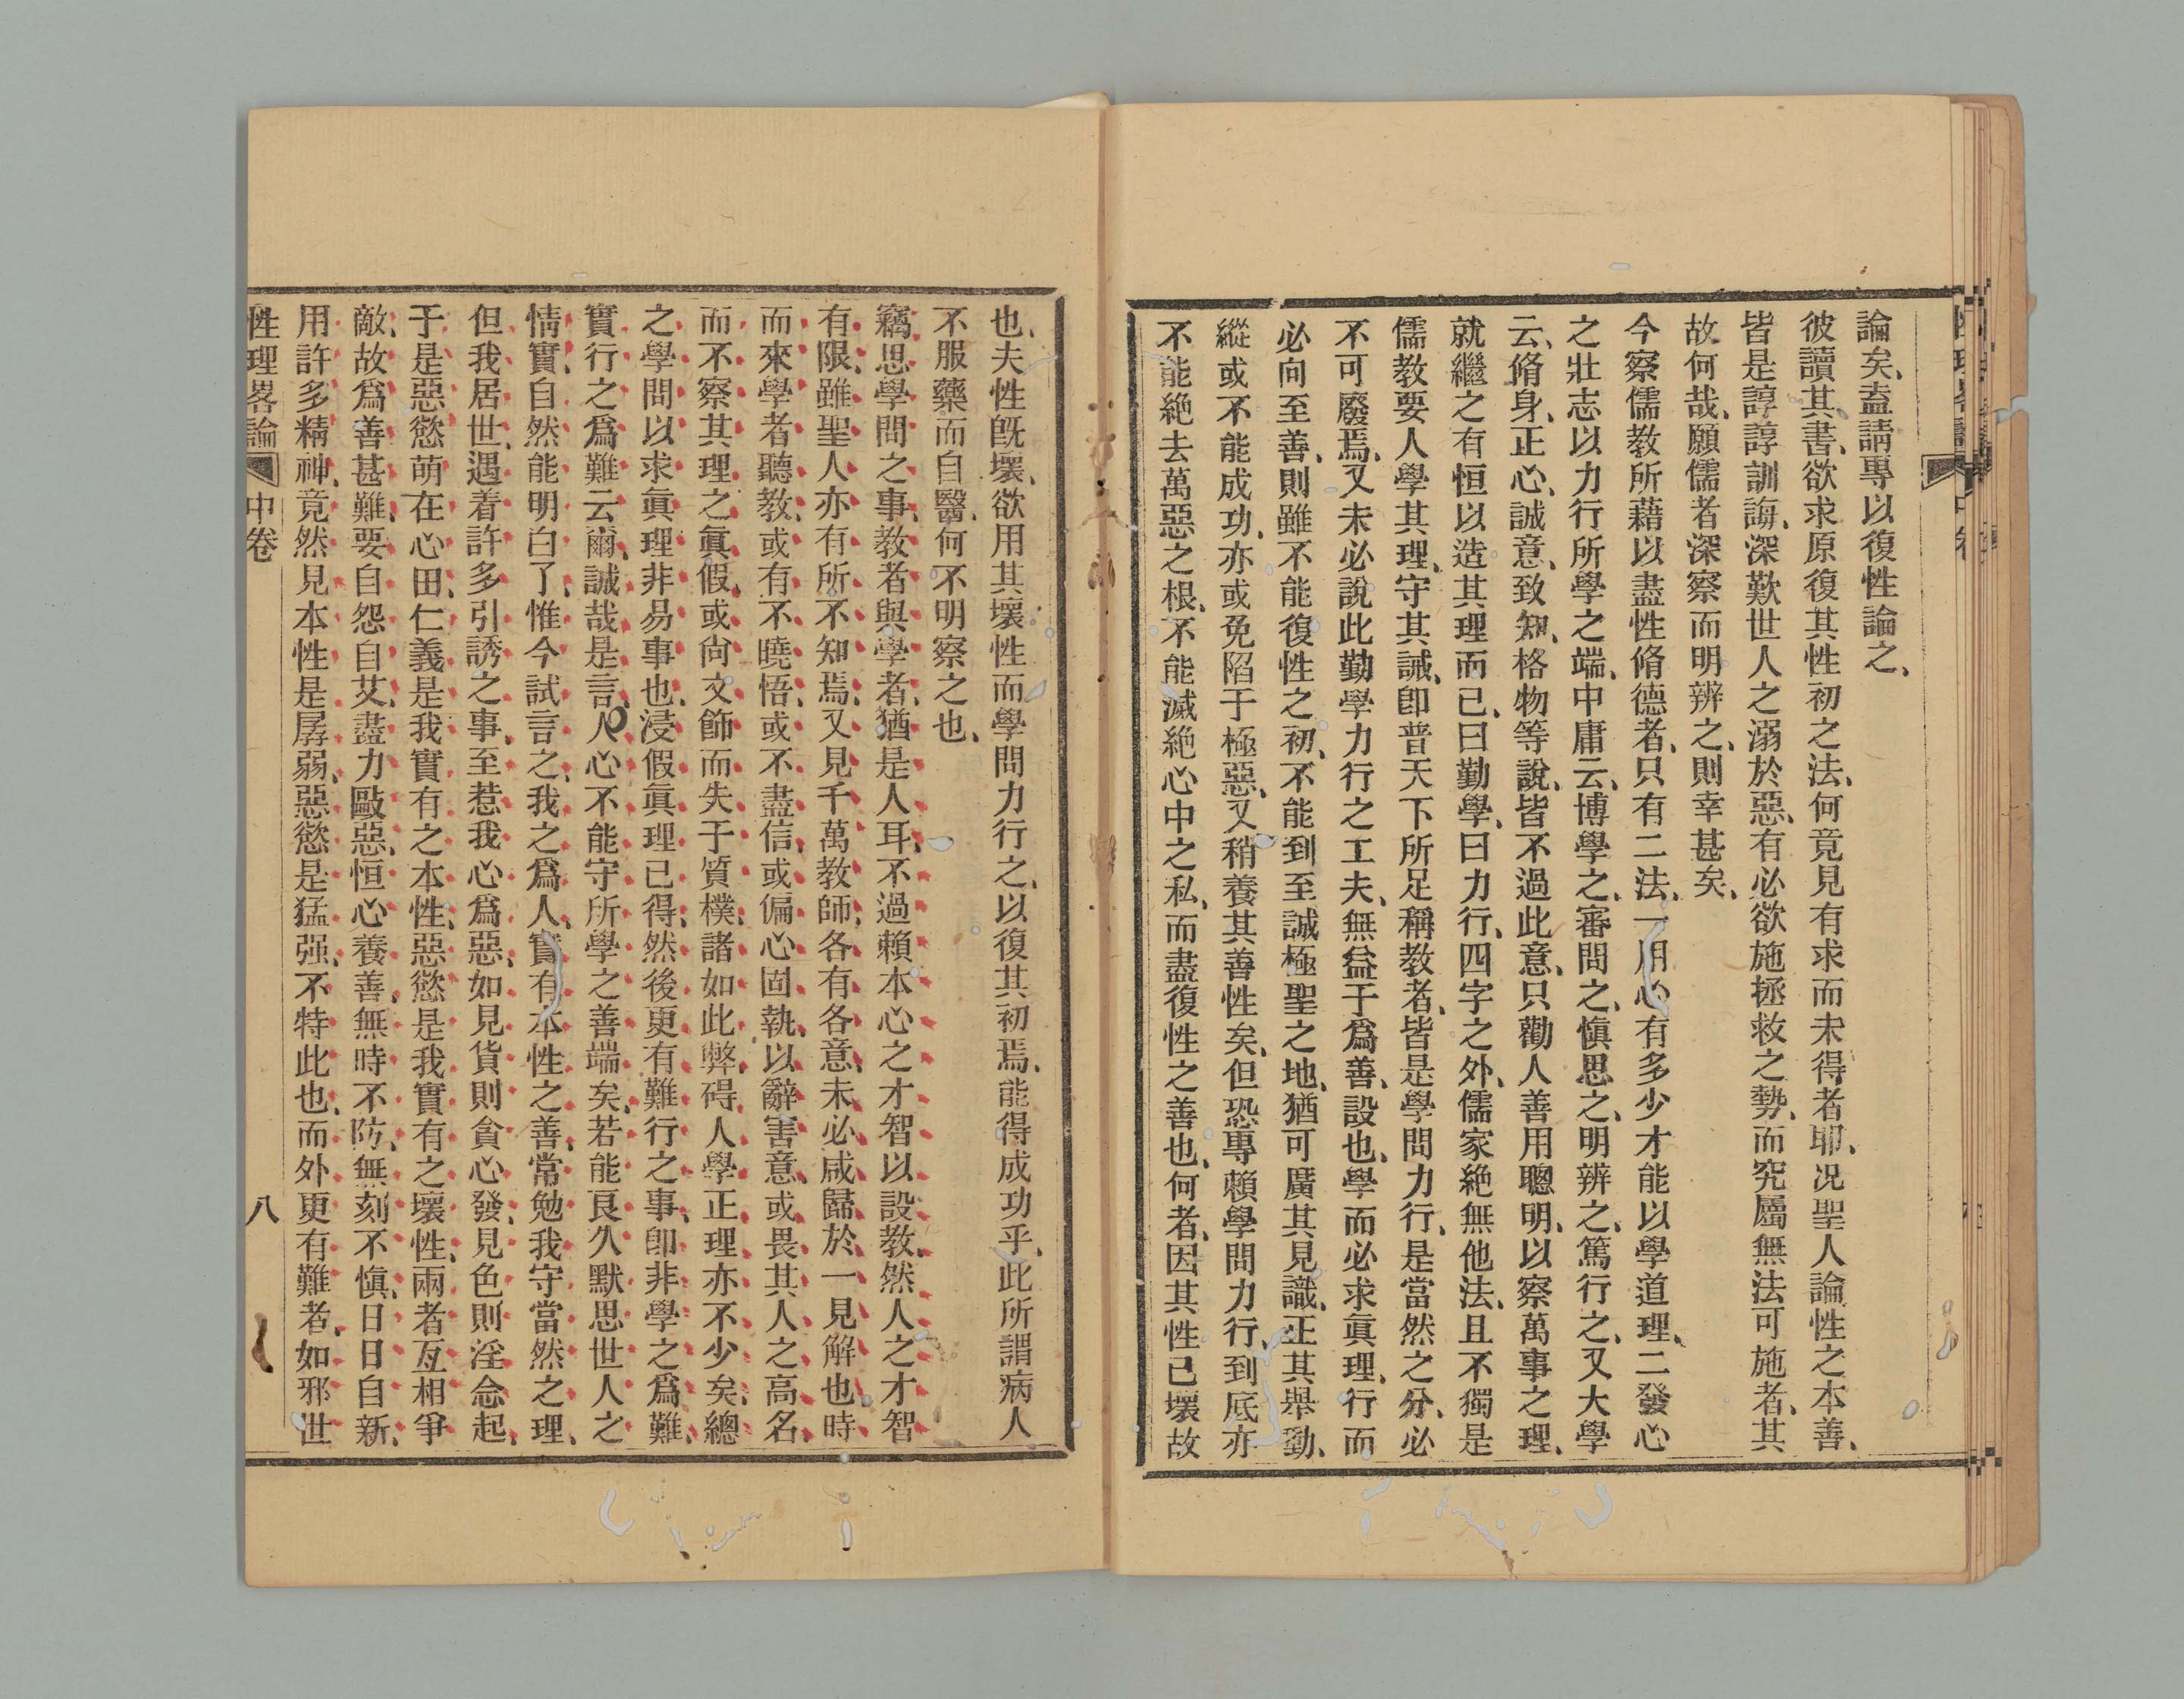 論矣、盍請專以復性論之、
彼讀其書、欲求原復其性初之法、何竟見有求而未得者耶、况聖人論性之本善、
皆是諄諄訓誨、深歎世人之溺於惡、有必欲施拯救之勢、而究屬無法可施者、其
故何哉、願儒者深察而明辨之、則幸甚矣、
今察儒教所藉以盡性脩德者、只有二法、一用心有多少才能以學道理、二發心
之壯志以力行所學之端、中庸云、博學之、審問之、愼思之、明辨之、篤行之、又大學
云、脩身、正心、誠意、致知、格物等說、皆不過此意、只勸人善用聰明、以察萬事之理、
就繼之有恒以造其理而已、曰勤學、曰力行、四字之外、儒家絶無他法、且不獨是
儒教要人學其理、守其誡、卽普天下所足稱教者、皆是學問力行、是當然之分、必
不可廢焉、又未必說此勤學力行之工夫、無益于爲善、設也、學而必求眞理、行而
必向至善、則雖不能復性之初、不能到至誠極聖之地、猶可廣其見識、正其舉動、
縱或不能成功、亦或免陷于極惡、又稍養其善性矣、但恐專賴學問力行、到底亦
不能絶去萬惡之根、不能滅絶心中之私、而盡復性之善也、何者、因其性已壞故
也、夫性旣壞、欲用其壞性而學問力行之、以復其初焉、能得成功乎、此所謂病人
不服藥而自醫、何不明察之也、
竊思學問之事、教者與學者、猶是人耳、不過賴本心之才智以設教、然人之才智
有限、雖聖人亦有所不知焉、又見千萬教師、各有各意、未必咸歸於一見解也、時
而來學者聽教、或有不曉悟、或不盡信、或偏心固執、以辭害意、或畏其人之高名、
而不察其理之眞假、或尙文飾而失于質樸、諸如此弊碍、人學正理亦不少矣、總
之學問以求眞理非易事也、浸假眞理已得、然後更有難行之事、卽非學之爲難、
實行之爲難云爾、誠哉是言、人心不能守所學之善端矣、若能良久默思世人之
情實、自然能明白了、惟今試言之、我之爲人、實有本性之善、常勉我守當然之理、
但我居世、遇着許多引誘之事、至惹我心爲惡、如見貨則貪心發、見色則淫念起、
于是惡慾萌在心田、仁義是我實有之本性、惡慾是我實有之壞性、兩者互相爭
敵、故爲善甚難、要自怨自艾、盡力敺惡、恒心養善、無時不防、無刻不愼、日日自新、
用許多精神、竟然見本性是孱弱、惡慾是猛强、不特此也、而外更有難者、如邪世
性理畧論 中卷 八